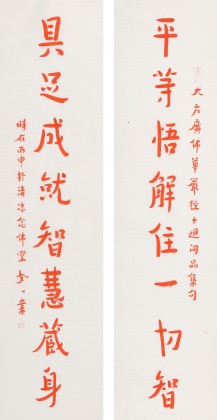 大方廣佛華嚴經十迴向品集句
平等悟解住一切智
具足成就智慧藏身
時在丙申於清涼念佛堂 一書